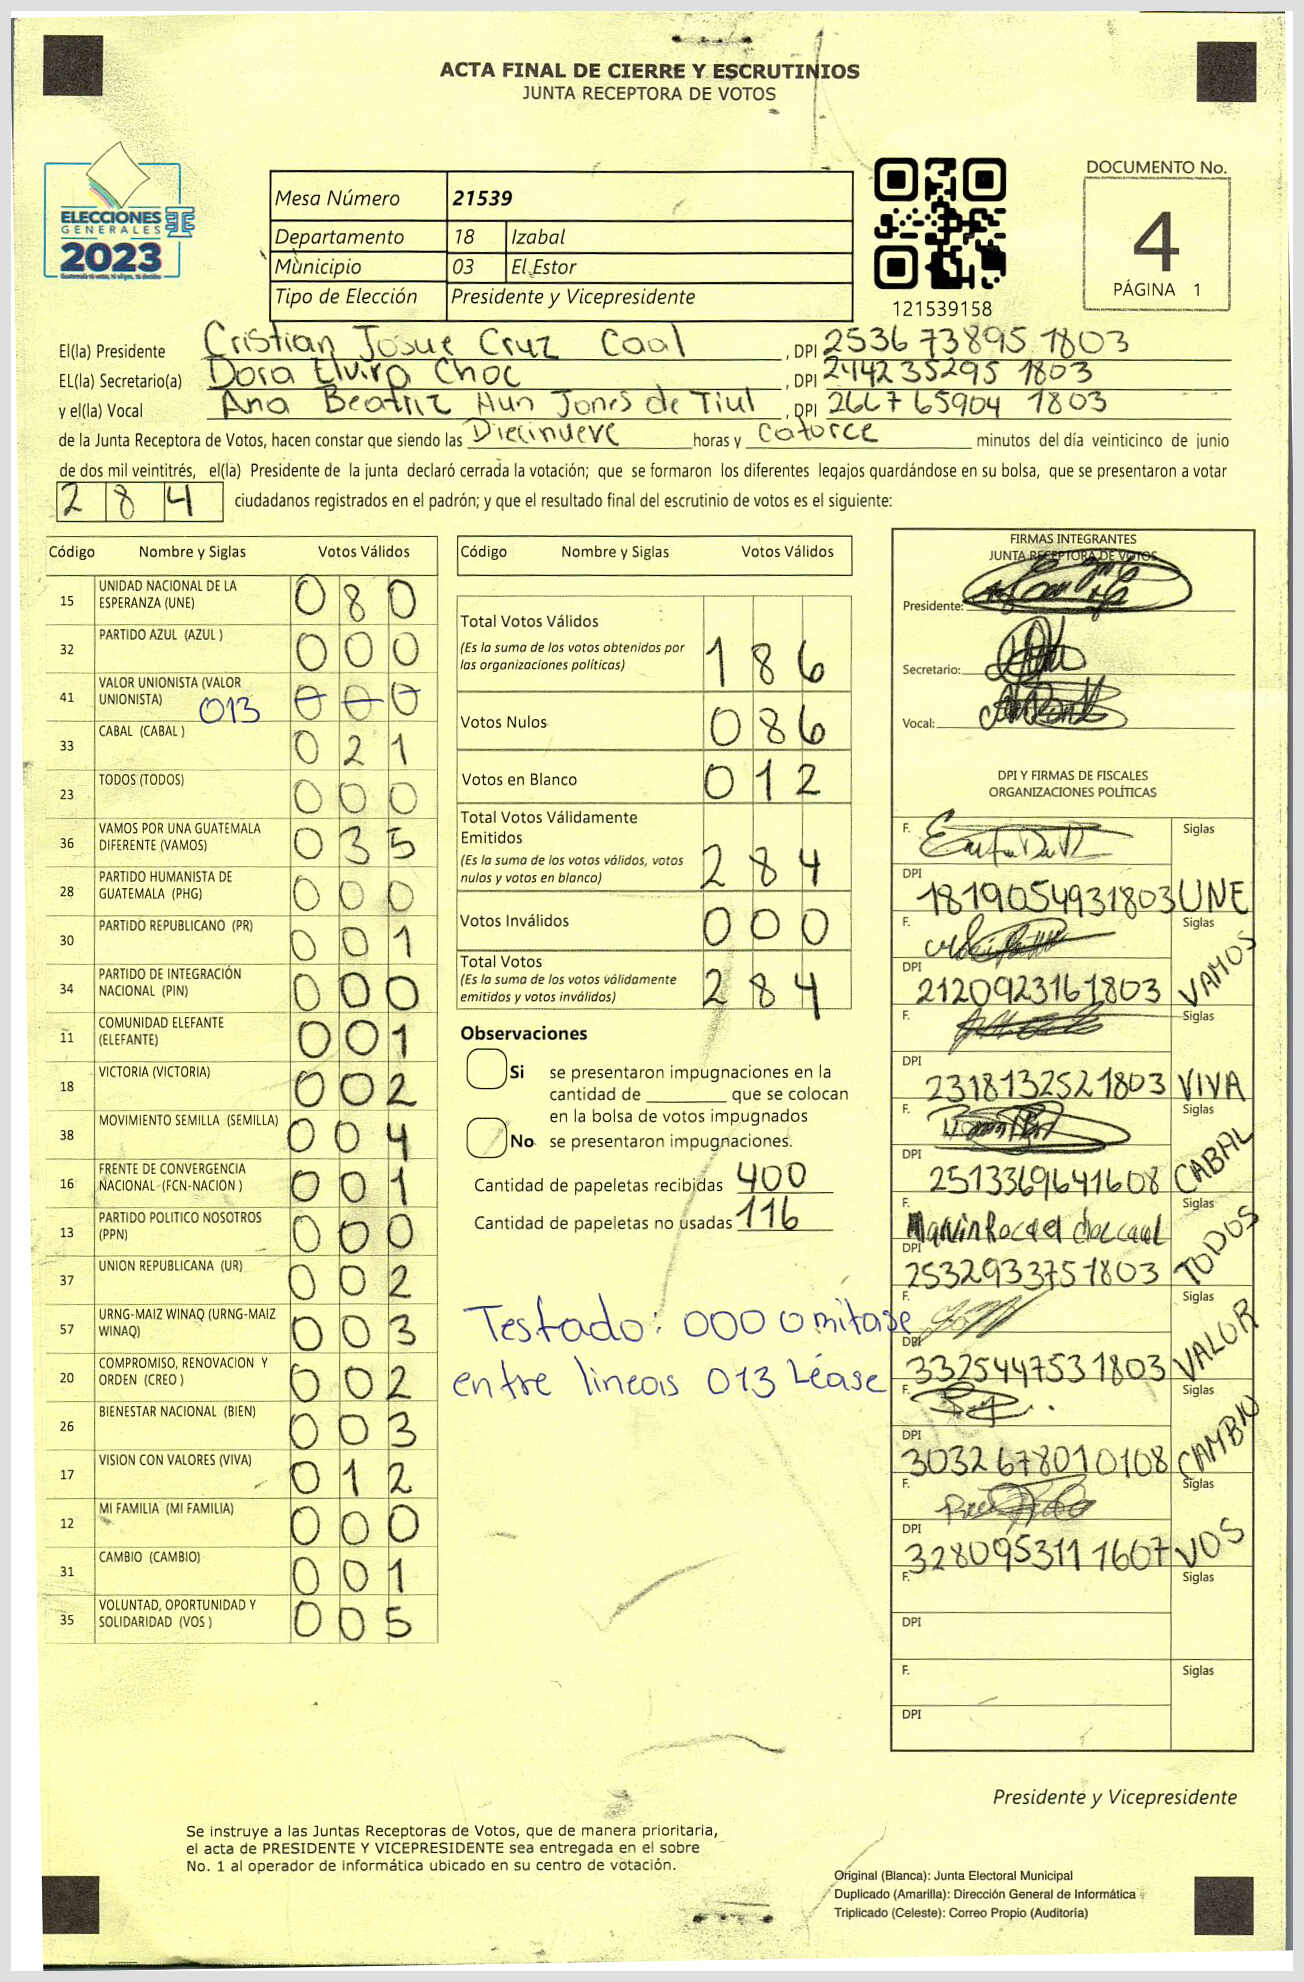 ACTA FINAL DE CIERRE Y ESCRUTINIOS
JUNTA RECEPTORA DE VOTOS
ELECCIONES
GENERALES
2023
Mesa Número 21539
Departamento 18 Izabal
Municipio 03 El Estor
Tipo de Elección Presidente y Vicepresidente
121539158
DOCUMENTO No.
4
PÁGINA 1
El(la) Presidente Cristian Josue Cruz Caal , DPI 2536 73895 1803
EL(la) Secretario(a) Dora Elvira Choc , DPI 2442 35295 1803
y el(la) Vocal Ana Beatriz Hun Jones de Tiul , DPI 2667 65904 1803
de la Junta Receptora de Votos, hacen constar que siendo las Diecinueve horas y catorce minutos del día veinticinco de junio
de dos mil veintitrés, el(la) Presidente de la junta declaró cerrada la votación; que se formaron los diferentes legajos guardándose en su bolsa, que se presentaron a votar
284 ciudadanos registrados en el padrón; y que el resultado final del escrutinio de votos es el siguiente:
Código Nombre y Siglas Votos Válidos
15 UNIDAD NACIONAL DE LA ESPERANZA (UNE) 080
32 PARTIDO AZUL (AZUL ) 000
41 VALOR UNIONISTA (VALOR UNIONISTA) 013 000
33 CABAL (CABAL ) 021
23 TODOS (TODOS) 000
36 VAMOS POR UNA GUATEMALA DIFERENTE (VAMOS) 035
28 PARTIDO HUMANISTA DE GUATEMALA (PHG) 000
30 PARTIDO REPUBLICANO (PR) 001
34 PARTIDO DE INTEGRACIÓN NACIONAL (PIN) 000
11 COMUNIDAD ELEFANTE (ELEFANTE) 001
18 VICTORIA (VICTORIA) 002
38 MOVIMIENTO SEMILLA (SEMILLA) 004
16 FRENTE DE CONVERGENCIA NACIONAL (FCN-NACION ) 001
13 PARTIDO POLITICO NOSOTROS (PPN) 000
37 UNION REPUBLICANA (UR) 002
57 URNG-MAIZ WINAQ (URNG-MAIZ WINAQ) 003
20 COMPROMISO, RENOVACION Y ORDEN (CREO ) 002
26 BIENESTAR NACIONAL (BIEN) 003
17 VISION CON VALORES (VIVA) 012
12 MI FAMILIA (MI FAMILIA) 000
31 CAMBIO (CAMBIO) 001
35 VOLUNTAD, OPORTUNIDAD Y SOLIDARIDAD (VOS ) 005
Código Nombre y Siglas Votos Válidos
Total Votos Válidos 186
(Es la suma de los votos obtenidos por
las organizaciones políticas)
Votos Nulos 086
Votos en Blanco 012
Total Votos Válidamente
Emitidos 284
(Es la suma de los votos válidos, votos
nulos y votos en blanco)
Votos Inválidos 000
Total Votos 284
(Es la suma de los votos válidamente
emitidos y votos inválidos)
Observaciones
Si se presentaron impugnaciones en la
cantidad de ________ que se colocan
en la bolsa de votos impugnados
No se presentaron impugnaciones.
Cantidad de papeletas recibidas 400
Cantidad de papeletas no usadas 116
Testado: 000 Omitase
entre lineas 013 Léase
FIRMAS INTEGRANTES
JUNTA RECEPTORA DE VOTOS
Presidente:
Secretario:
Vocal:
DPI Y FIRMAS DE FISCALES
ORGANIZACIONES POLÍTICAS
F. Siglas
DPI 1819054931803 UNE
F. Siglas
DPI 2120923161803 VAMOS
F. Siglas
DPI 2318132521803 VIVA
F. Siglas
DPI 2513369641608 CABAL
F. Siglas
DPI 2532933751803 TODOS
F. Siglas
DPI 3325447531803 VALOR
F. Siglas
DPI 3032678010108 CAMBIO
F. Siglas
DPI 3280953111607 VOS
F. Siglas
DPI
F. Siglas
DPI
Presidente y Vicepresidente
Se instruye a las Juntas Receptoras de Votos, que de manera prioritaria,
el acta de PRESIDENTE Y VICEPRESIDENTE sea entregada en el sobre
No. 1 al operador de informática ubicado en su centro de votación.
Original (Blanca): Junta Electoral Municipal
Duplicado (Amarilla): Dirección General de Informática
Triplicado (Celeste): Correo Propio (Auditoría)